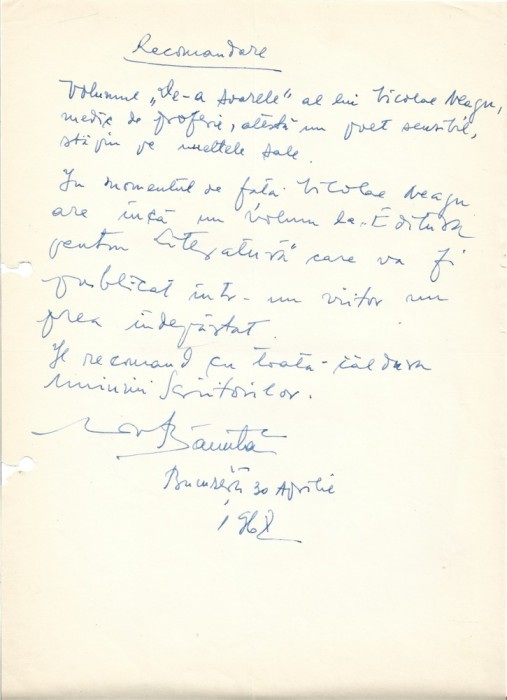 Recomandare
Volumul „De-a soarele" al lui Nicolae Neagu,
medic de profesie, atestă un poet sensibil,
stăpîn pe uneltele sale.
In momentul de față Nicolae Neagu
are încă un volum la „Editura
pentru Literatură" care va fi
publicat într-un viitor nu
prea îndepărtat.
Il recomand cu toată căldura
Uniunii Scriitorilor.
Ion Bănuță
București 30 Aprilie
1968